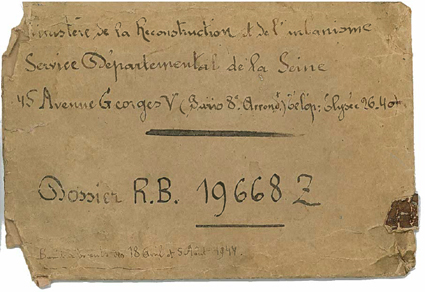 Ministère de la Reconstruction et de l'urbanisme
Service Départemental de la Seine
45 Avenue Georges V (Paris 8e Arrondt) Télép: Élysée 26.40
Dossier R.B. 19668 Z
18 Avril et 5 1944.